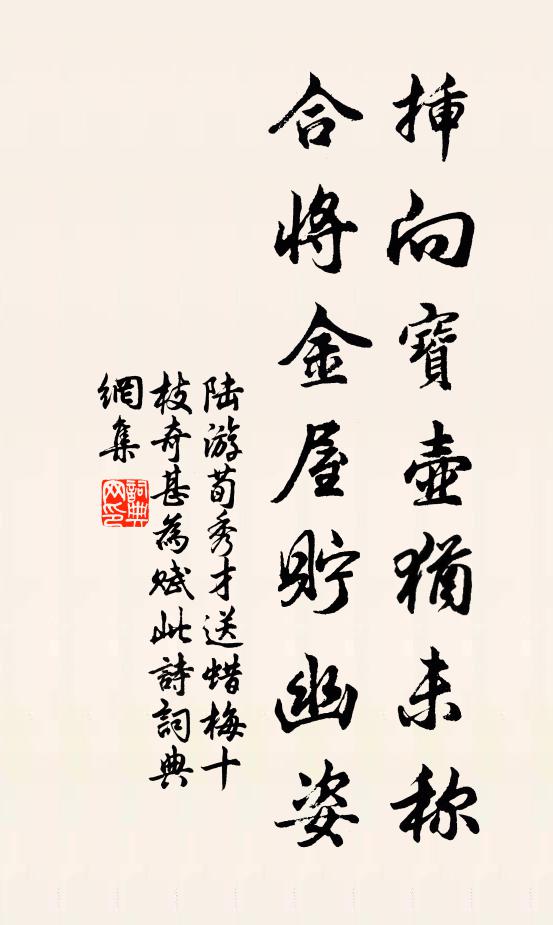 挿向寶壺猶未称
合將金屋貯幽姿
陆游荀秀才送蜡梅十
枝奇甚為赋此詩詞典
網集
詞典
网印